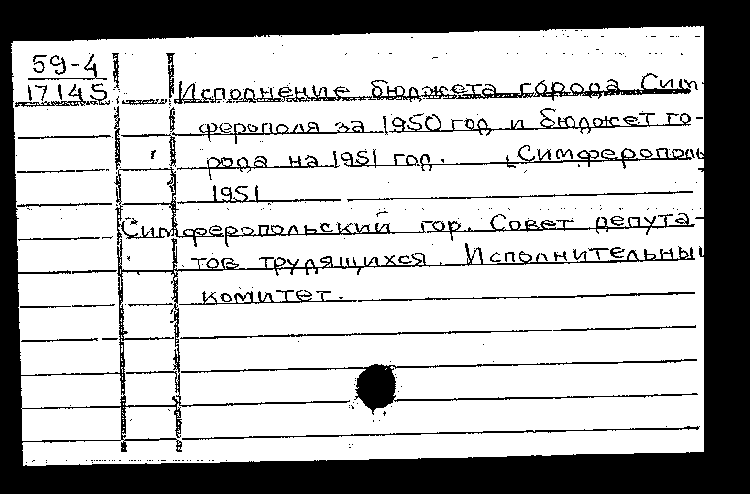 59-4
17145
Исполнение бюджета города Сим-
ферополя за 1950 год и бюджет го-
рода на 1951 год. [Симферополь
1951
Симферопольский гор. Совет депута-
тов трудящихся. Исполнительный
комитет.